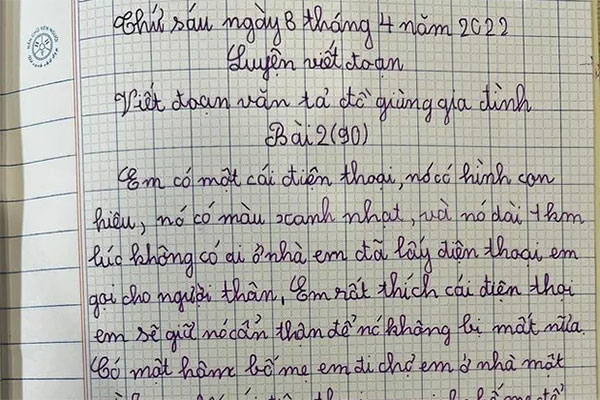 Thứ sáu ngày 8 tháng 4 năm 2022
Luyện viết đoạn
Viết đoạn văn tả đồ giùng gia đình
Bài 2 (90)
Em có một cái điện thoại, nó có hình con
hiêu, nó có màu xanh nhạt, và nó dài 1km
lúc không có ai ở nhà em đã lấy điện thoại em
gọi cho người thân, Em rất thích cái điện thoại
em sẽ giữ nó cẩn thân để nó không bị mất nữa.
Có một hôm bố mẹ em đi chợ em ở nhà một